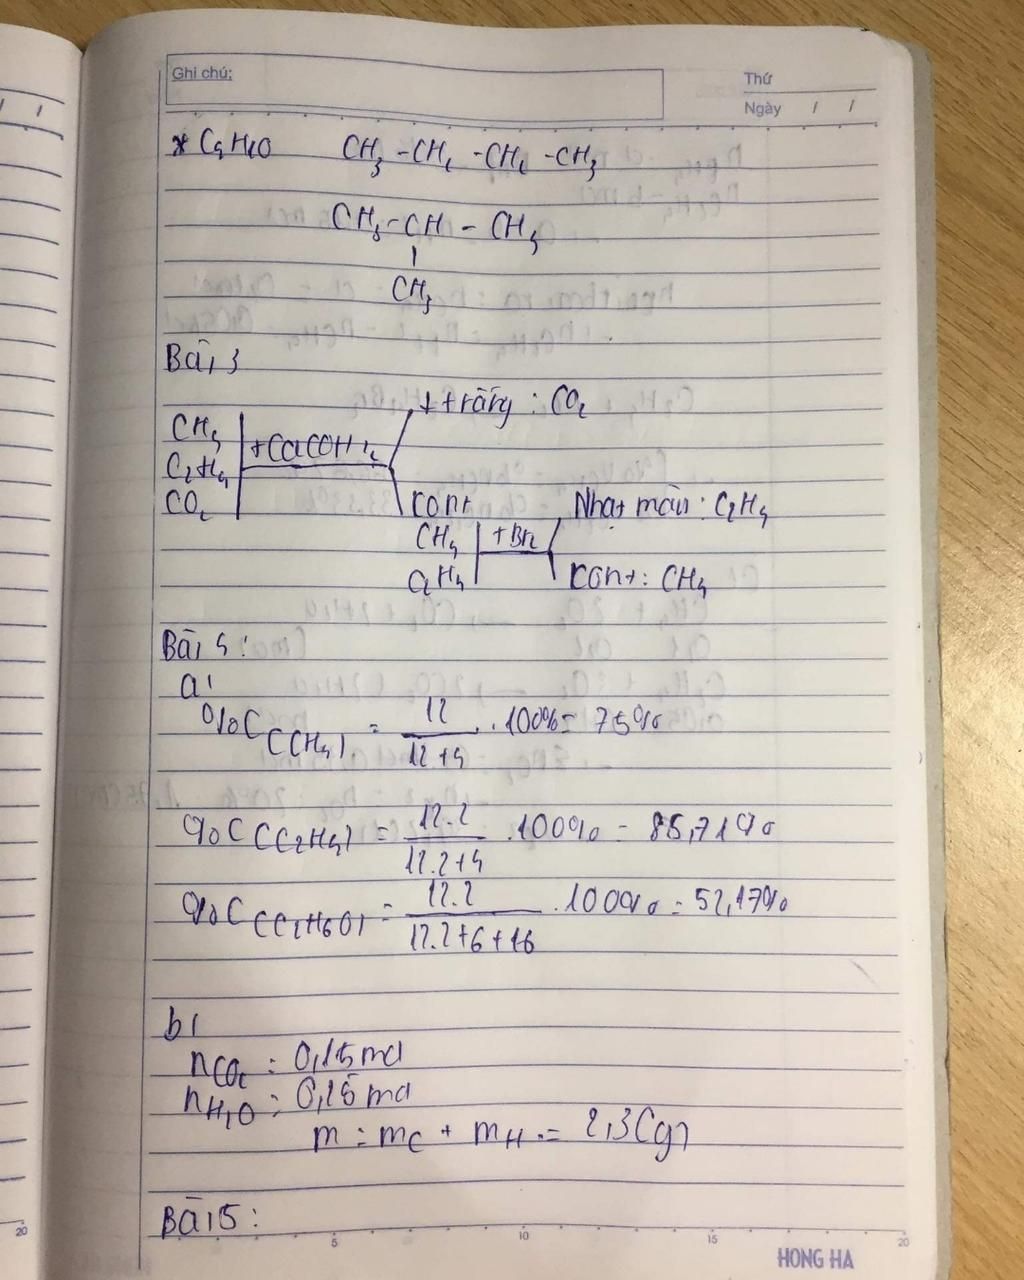 Ghi chú:
Thứ
Ngày / /
* C4H10 CH3 - CH2 - CH2 - CH3
CH3 - CH - CH3
|
CH3
Bài 3
↓ trắng : CO2
CH4
C2H4 + Ca(OH)2
CO2 Còn + Nhạt màu : C2H4
CH4 + Br2
C2H4 Còn + : CH4
Bài 4 :
a)
%C (CH4) = 12 / 12+4 . 100% = 75%
%C (C2H4) = 12.2 / 12.2+4 . 100% = 85,71%
%C (C2H6O) = 12.2 / 12.2+6+16 . 100% = 52,17%
b)
nCO2 = 0,15 mol
nH2O = 0,25 mol
m = mC + mH = 2,3 (g)
Bài 5 :
20 5 10 15 20
HONG HA